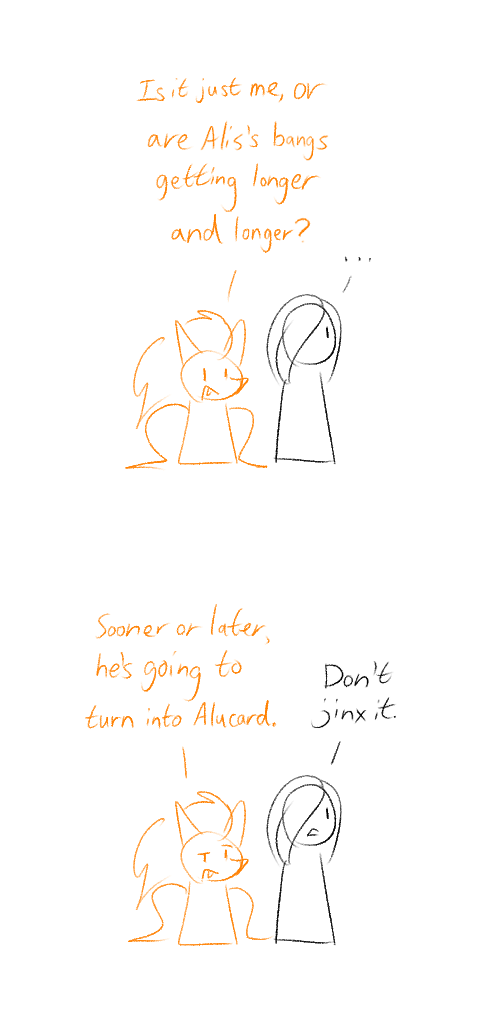 Is it just me, or
are Alis's bangs
getting longer
and longer?
...
Sooner or later,
he's going to
turn into Alucard.
Don't
jinx it.